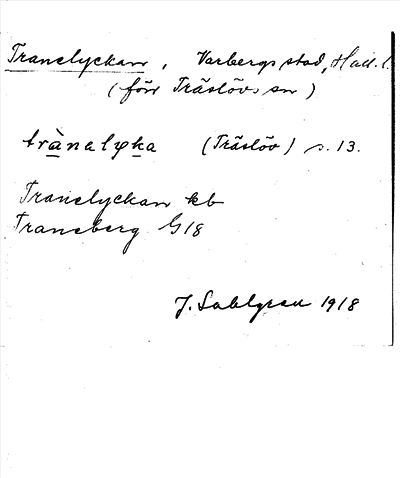 Tranelyckan, Varbergs stad, Hall. l.
(förr Träslövs sn)
trànalyka (Träslöv) s. 13.
Tranelyckan kb
Traneberg G18
J. Sahlgren 1918